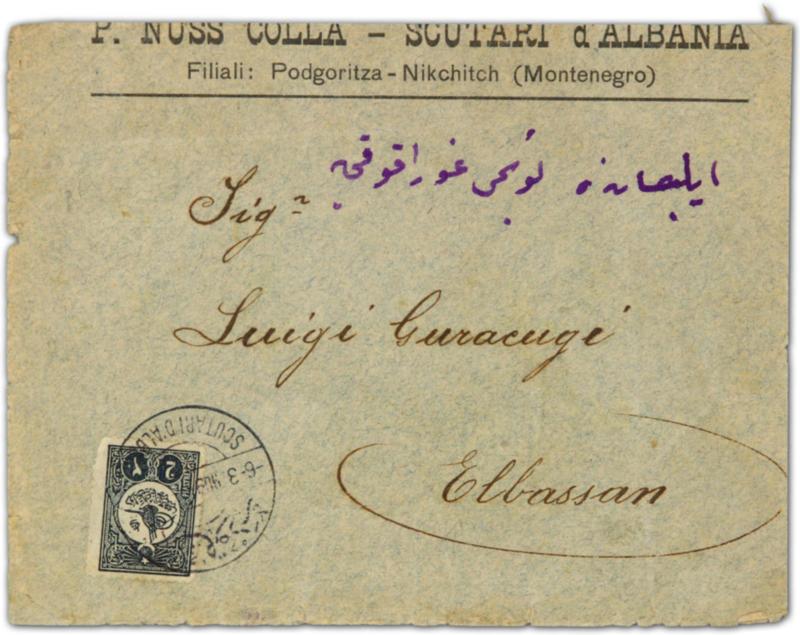 P. NUSS COLLA – SCUTARI d'ALBANIA
Filiali: Podgoritza - Nikchitch (Montenegro)
ايلبصانده لويجى غوراقوقى
Sigr
Luigi Guracugi
SCUTARI D'ALB
2
-6-3
Elbassan